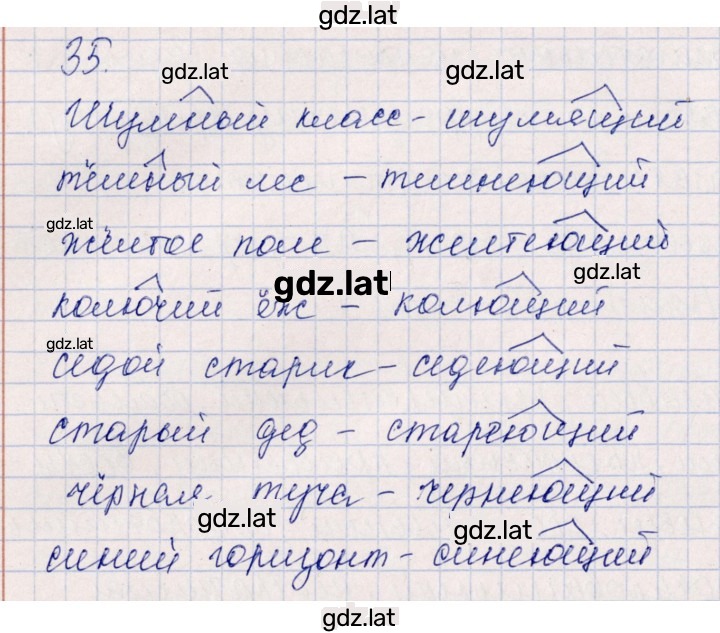 gdz.lat
35.
gdz.lat gdz.lat
Шумный класс - шумящий
тёмный лес - темнеющий
gdz.lat
жёлтое поле - желтеющий
gdz.lat
gdz.lat
колючий ёж - колющий
gdz.lat
седой старик - седеющий
старый дед - стареющий
чёрная туча - чернеющий
gdz.lat
gdz.lat
синий горизонт - синеющий
gdz.lat